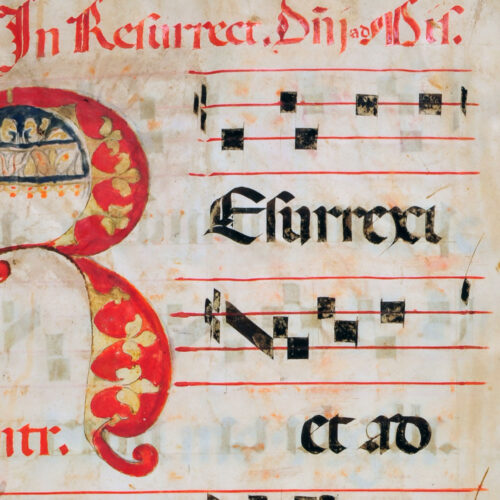 In Resurrect. Dñj ad Vᵗˢ.
Resurrexi
et ad
ntr.